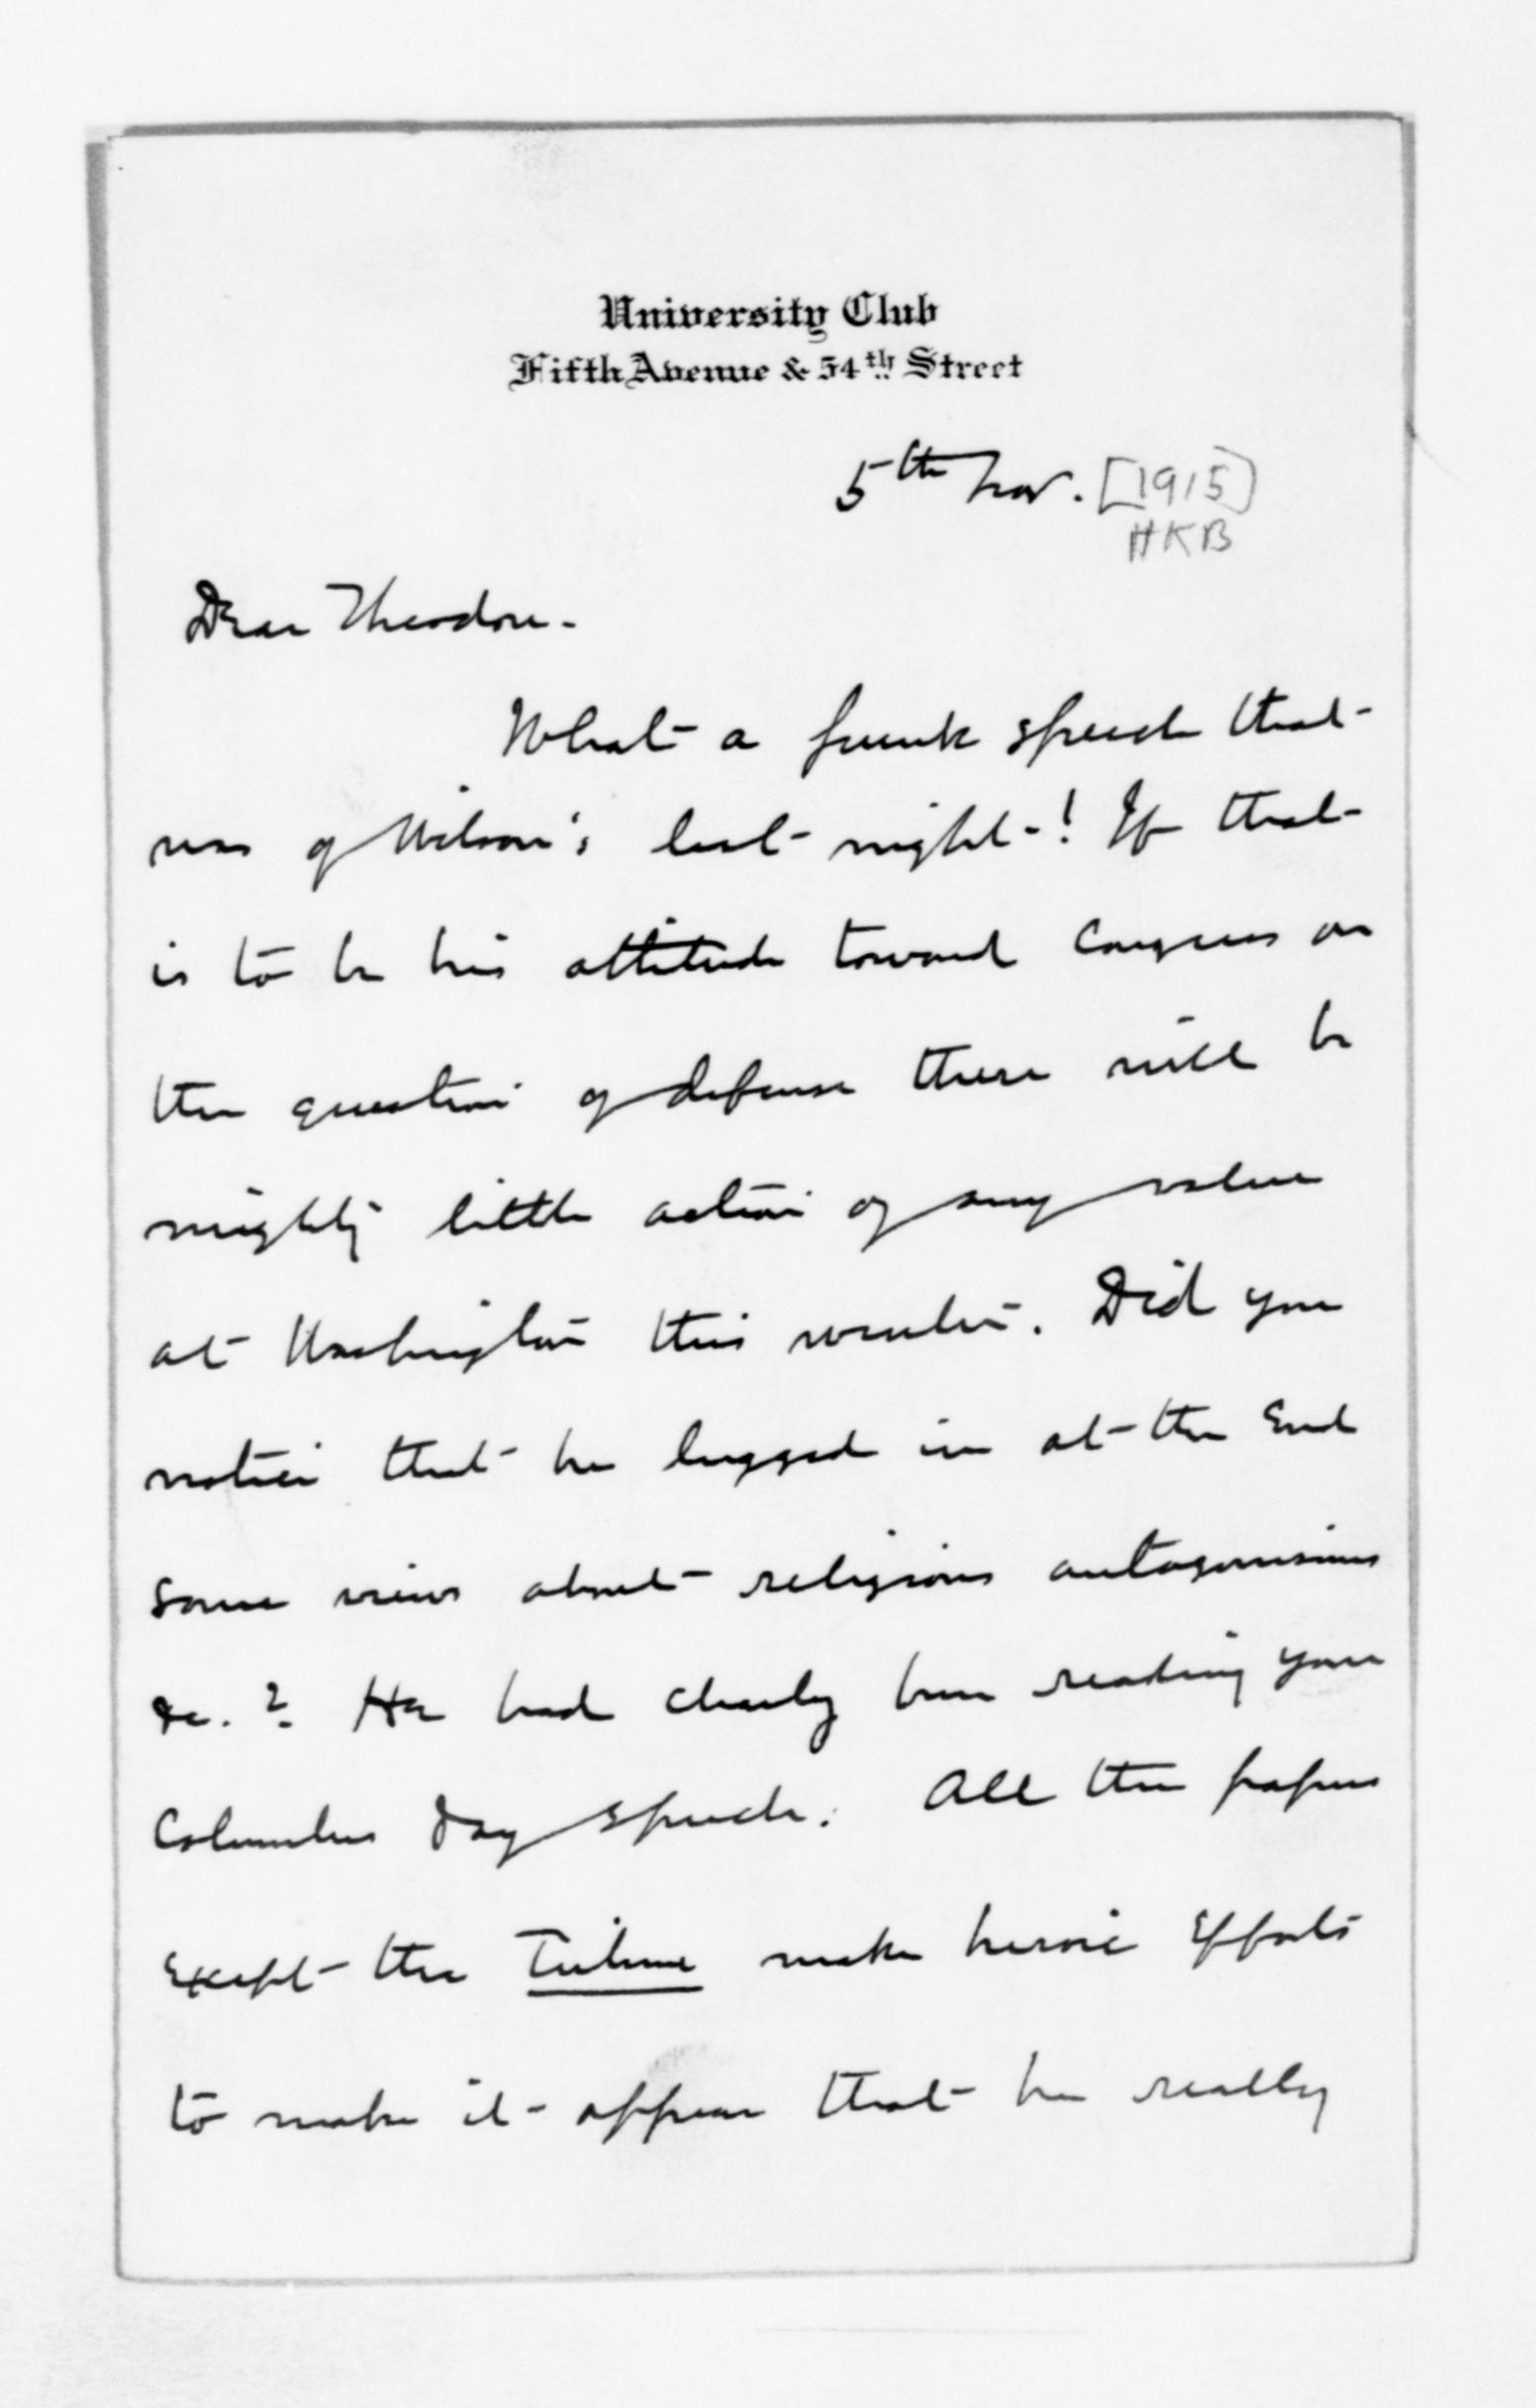 University Club
Fifth Avenue & 54th Street
5th Nov. [1915]
HKB
Dear Theodore -
What a funk speech that
was of Wilson's last night! If that
is to be his attitude toward Congress on
the question of defense there will be
mighty little action of any value
at Washington this winter. Did you
notice that he lugged in at the end
some views about religious antagonisms
&c.? He had clearly been reading your
Columbus Day speech. All the papers
except the Tribune make heroic efforts
to make it appear that he really